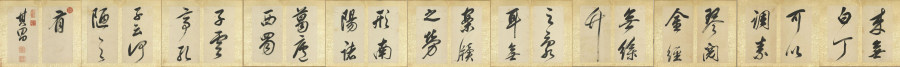 來無
白丁
可以
調素
琴閱
金經
無絲
竹
之亂
耳無
案牘
之勞
形南
陽諸
葛廬
西蜀
子雲
亭孔
子云何
陋之
有
其昌